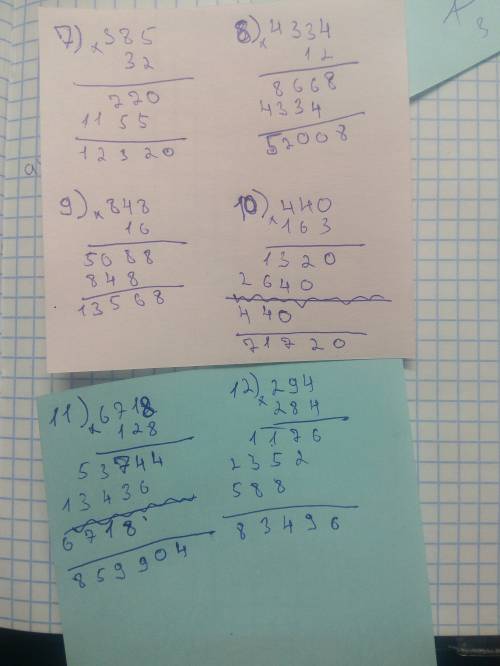 7) × 385
32
220
1155
12320
8) × 4334
12
8668
4334
52008
9) × 848
16
5088
848
13568
10) × 440
163
1320
2640
440
71720
11) × 6718
128
53744
13436
6718
859904
12) × 294
284
1176
2352
588
83496